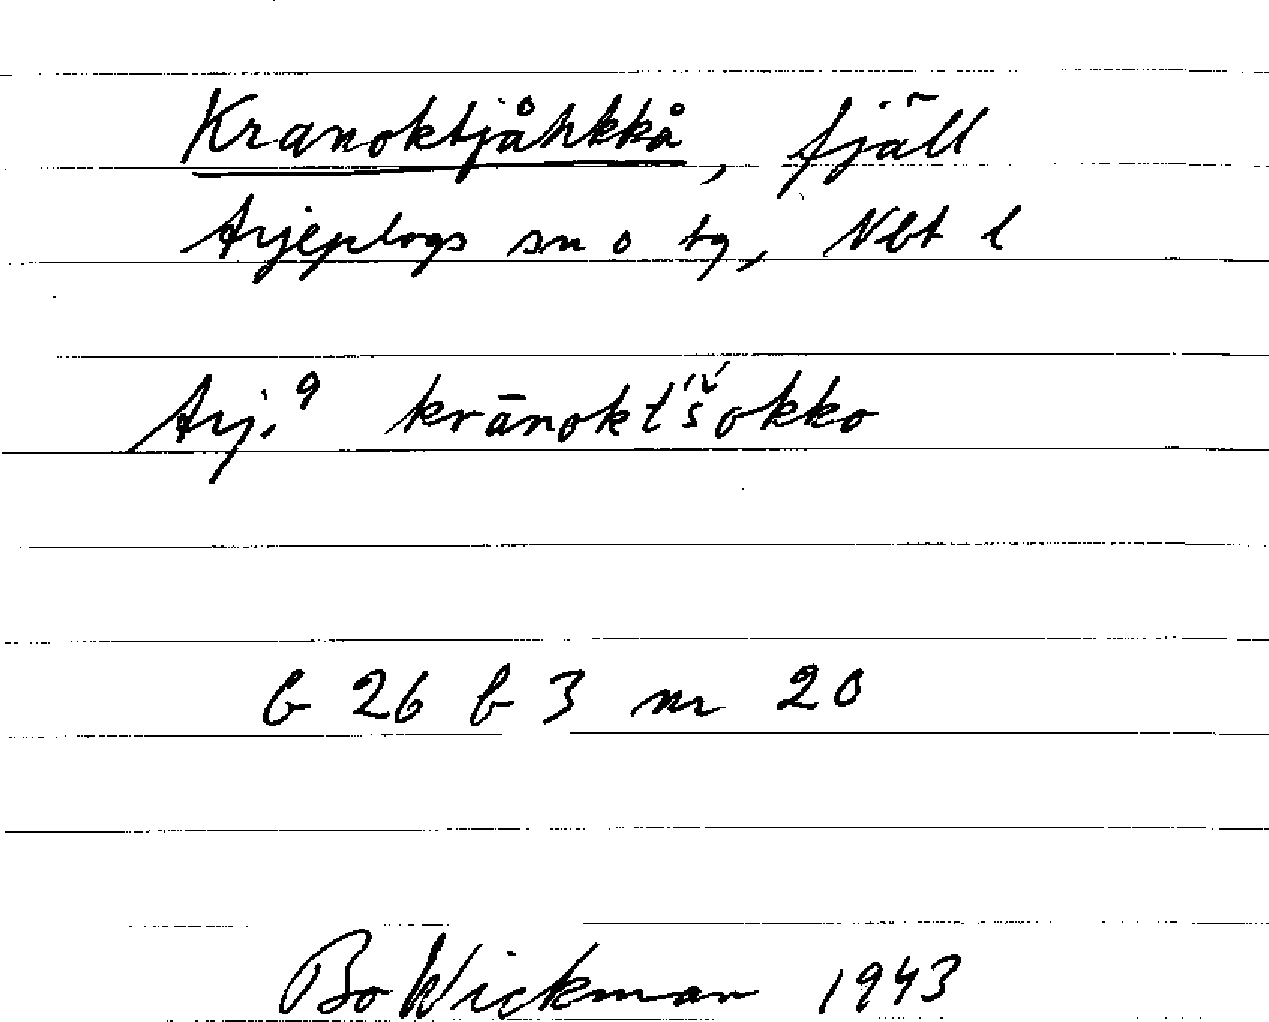 Kranoktjåhkkå, fjäll
Arjeplogs sn o tg, Nbt l
Arj. 9 krānoktš́okko
G 26 b 3 nr 20
Bo Wickman 1943